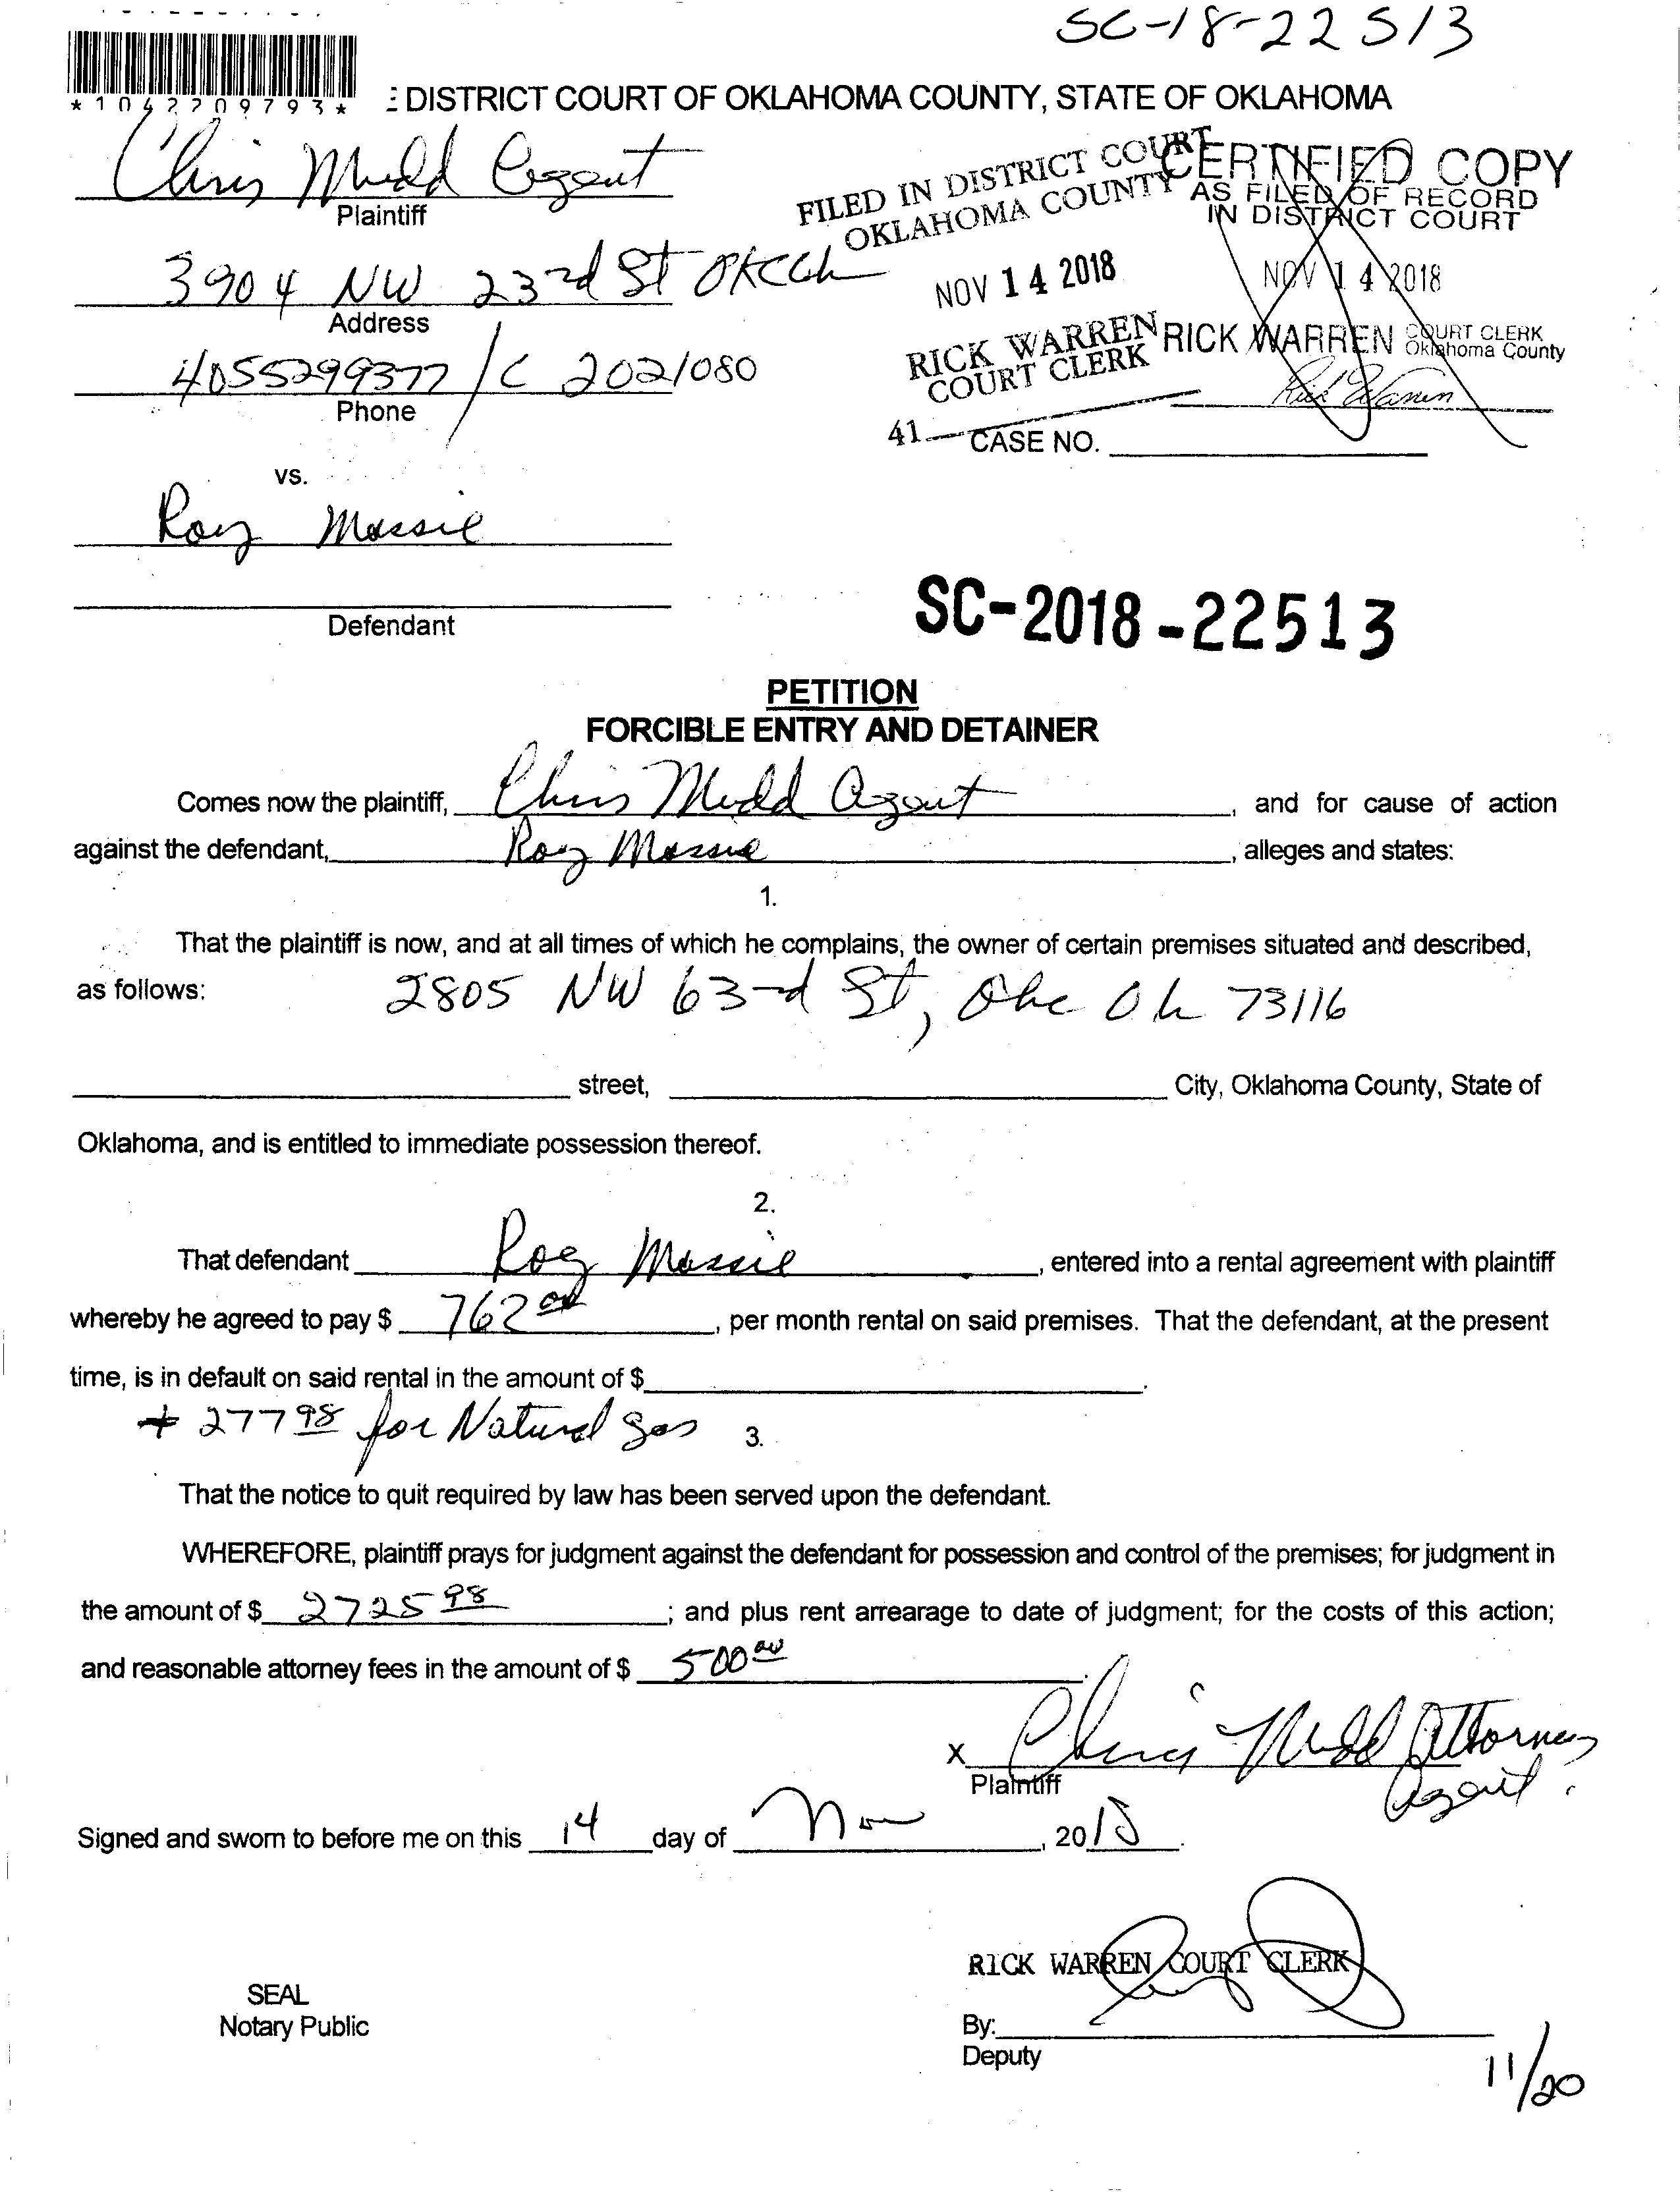 SC-18-22513
*1042209793*
: DISTRICT COURT OF OKLAHOMA COUNTY, STATE OF OKLAHOMA
Chris Mudd Agent
Plaintiff
FILED IN DISTRICT COURT
OKLAHOMA COUNTY
CERTIFIED COPY
AS FILED OF RECORD
IN DISTRICT COURT
3904 NW 23rd St OKC Ok
Address
NOV 14 2018
NOV 14 2018
4055299377 / C 2021080
Phone
RICK WARREN
COURT CLERK
RICK WARREN COURT CLERK
Oklahoma County
Rick Warren
41
CASE NO.
vs.
Roy Massie
Defendant
SC-2018-22513
PETITION
FORCIBLE ENTRY AND DETAINER
Comes now the plaintiff, Chris Mudd Agent, and for cause of action
against the defendant, Roy Massie, alleges and states:
1.
That the plaintiff is now, and at all times of which he complains, the owner of certain premises situated and described,
as follows: 2805 NW 63rd St, Okc Ok 73116
street, City, Oklahoma County, State of
Oklahoma, and is entitled to immediate possession thereof.
2.
That defendant Roy Massie, entered into a rental agreement with plaintiff
whereby he agreed to pay $ 762 00, per month rental on said premises. That the defendant, at the present
time, is in default on said rental in the amount of $ .
+ 277 98 for Natural gas
3.
That the notice to quit required by law has been served upon the defendant.
WHEREFORE, plaintiff prays for judgment against the defendant for possession and control of the premises; for judgment in
the amount of $ 2725 98; and plus rent arrearage to date of judgment; for the costs of this action;
and reasonable attorney fees in the amount of $ 500 00.
X Chris Mudd Attorney
Plaintiff
Agent
Signed and sworn to before me on this 14 day of Nov, 2018.
RICK WARREN COURT CLERK
SEAL
Notary Public
By:
Deputy
11/20